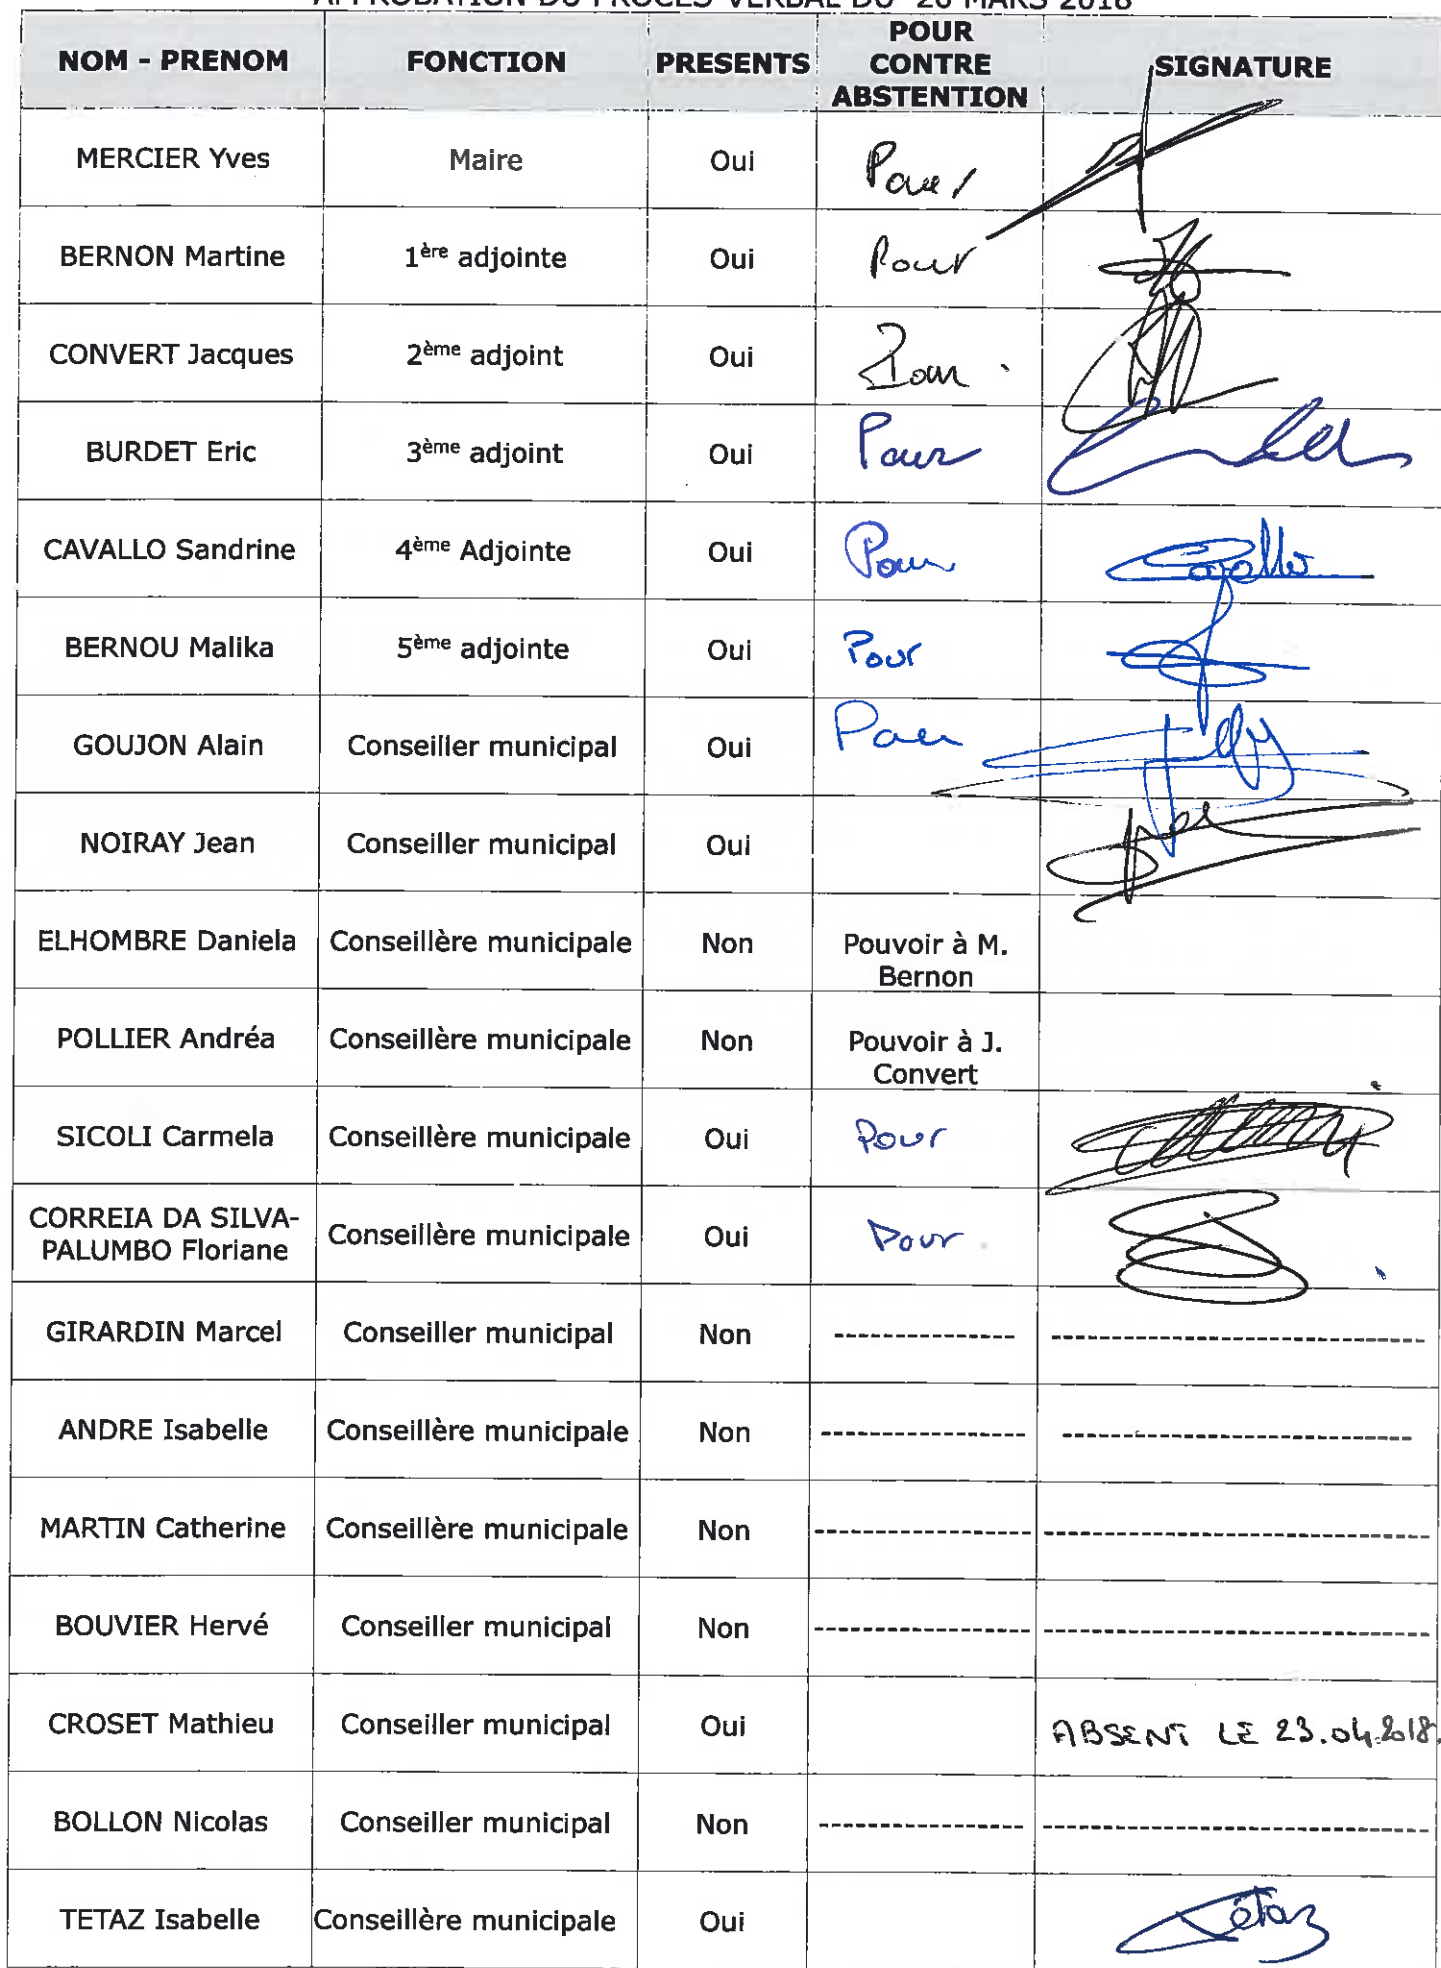 APPROBATION DU PROCES VERBAL DU 26 MARS 2018
NOM - PRENOM FONCTION PRESENTS POUR CONTRE ABSTENTION SIGNATURE
MERCIER Yves Maire Oui Pour
BERNON Martine 1ère adjointe Oui Pour
CONVERT Jacques 2ème adjoint Oui Pour
BURDET Eric 3ème adjoint Oui Pour
CAVALLO Sandrine 4ème Adjointe Oui Pour Cavallo
BERNOU Malika 5ème adjointe Oui Pour
GOUJON Alain Conseiller municipal Oui Pour
NOIRAY Jean Conseiller municipal Oui
ELHOMBRE Daniela Conseillère municipale Non Pouvoir à M.
Bernon
POLLIER Andréa Conseillère municipale Non Pouvoir à J.
Convert
SICOLI Carmela Conseillère municipale Oui Pour
CORREIA DA SILVA-
PALUMBO Floriane Conseillère municipale Oui Pour
GIRARDIN Marcel Conseiller municipal Non
ANDRE Isabelle Conseillère municipale Non
MARTIN Catherine Conseillère municipale Non
BOUVIER Hervé Conseiller municipal Non
CROSET Mathieu Conseiller municipal Oui ABSENT LE 23.04.2018.
BOLLON Nicolas Conseiller municipal Non
TETAZ Isabelle Conseillère municipale Oui Tétaz